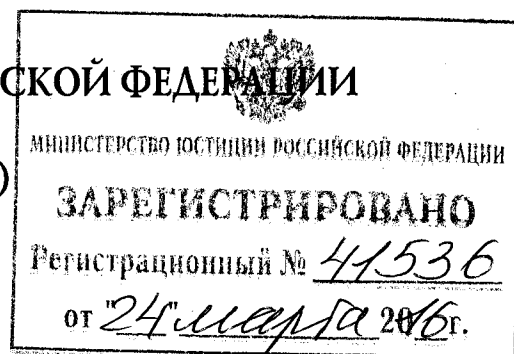 СКОЙ ФЕДЕРАЦИИ
МИНИСТЕРСТВО ЮСТИЦИИ РОССИЙСКОЙ ФЕДЕРАЦИИ
)
ЗАРЕГИСТРИРОВАНО
Регистрационный № 41536
от "24" марта 2016г.